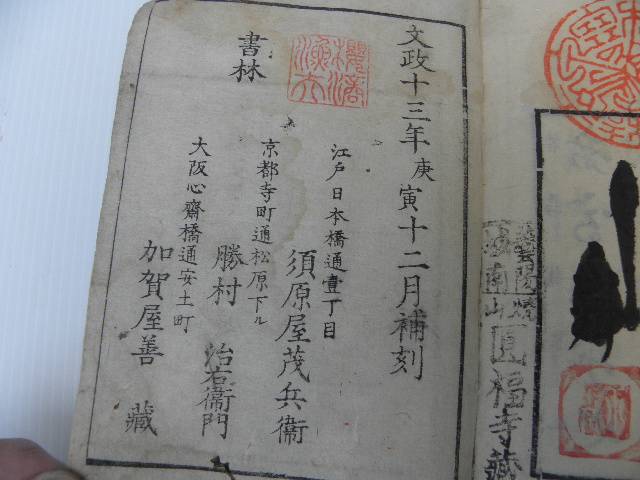 文政十三年庚寅十二月補刻
江戸日本橋通壹丁目
須原屋茂兵衛
京都寺町通松原下ル
勝村治右衛門
大阪心齋橋通安土町
加賀屋善藏
書林
圓福寺藏